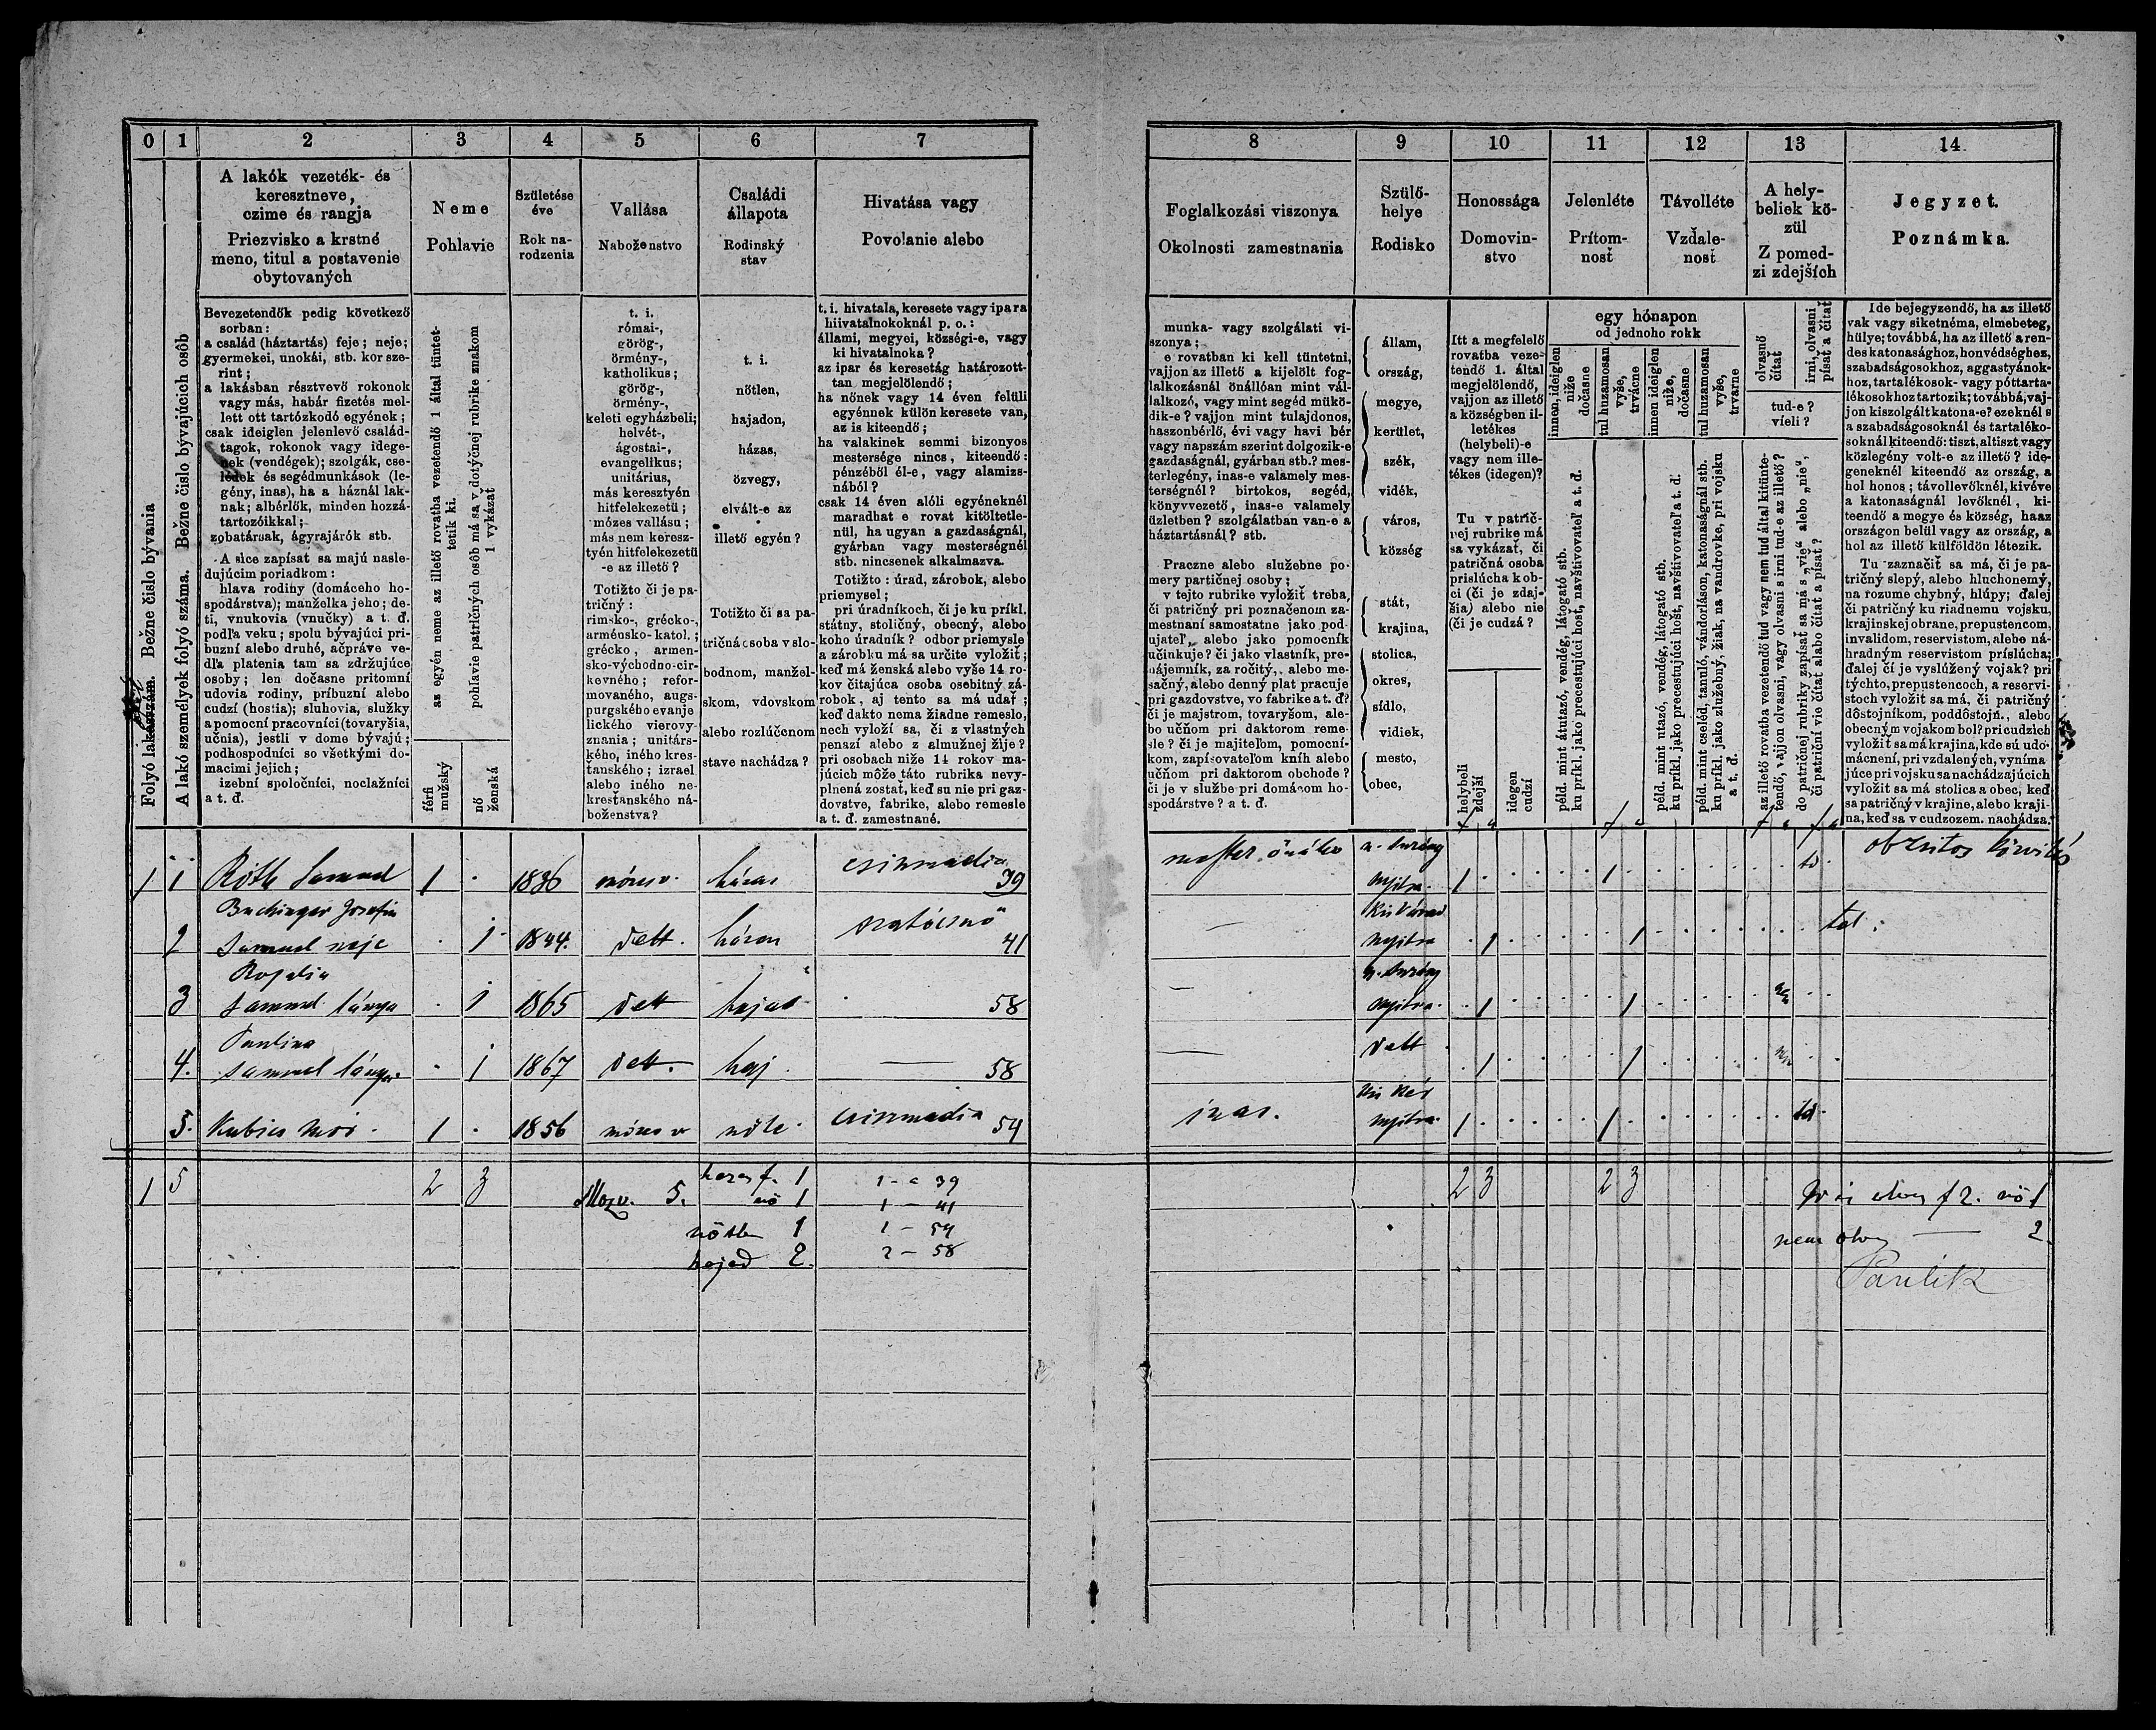 0 1 2 3 4 5 6 7
Folyó lakásszám. Bežne čislo bývania
A lakó személyek folyó száma. Bežne čislo bývajúcich osôb
A lakók vezeték- és
keresztneve,
czime és rangja
Priezvisko a krstné
meno, titul a postavenie
obytovaných
Neme
Pohlavie
Születése
éve
Rok na-
rodzenia
Vallása
Naboženstvo
Családi
állapota
Rodinský
stav
Hivatása vagy
Povolanie alebo
Bevezetendők pedig következő
sorban:
a család (háztartás) feje; neje;
gyermekei, unokái, stb. kor sze-
rint;
a lakásban résztvevő rokonok
vagy más, habár fizetés mel-
lett ott tartózkodó egyének;
csak ideiglen jelenlevő család-
tagok, rokonok vagy idege-
nek (vendégek); szolgák, cse-
lédek és segédmunkások (le-
gény, inas), ha a háznál lak-
nak; albérlők, minden hozzá-
tartozóikkal;
szobatársak, ágyrajárók stb.
A sice zapísat sa majú nasle-
dujúcim poriadkom:
hlava rodiny (domáceho ho-
spodárstva); manželka jeho; de-
ti, vnukovia (vnučky) a t. ď.
podľa veku; spolu bývajúci pri-
buzní alebo druhé, ačpráve ve-
dľa platenia tam sa zdržujúce
osoby; len dočasne pritomní
udovia rodiny, príbuzní alebo
cudzí (hostia); sluhovia, služky
a pomocní pracovníci (tovaryšia,
učnia), jestli v dome bývajú;
podhospodníci so všetkými do-
macimi jejich;
izební spoločníci, noclažníci
a t. ď.
az egyén neme az illető rovatba vezetendő 1 által tüntet-
tetik ki.
pohlavie patričných osôb má sa v dotýčnej rubrike znakom
1 vykázat
férfi
mužský
nő
ženská
t. i.
római-,
görög-,
örmény-,
katholikus;
görög-,
örmény-,
keleti egyházbeli;
helvét-,
ágostai-,
evangelikus;
unitárius,
más keresztyén
hitfelekezetü;
mózes vallásu;
más nem keresz-
tyén hitfelekezetü
-e az illető?
Totižto či je pa-
tričný:
rimsko-, grécko-,
arménsko-katol.;
grécko, armen-
sko-východno-cir-
kevného; refor-
movaného, augs-
purgského evanje
lického vierovy-
znania; unitárs-
kého, iného kres-
ťanského; izrael
alebo iného ne-
kresťanského ná-
boženstva?
t. i.
nőtlen,
hajadon,
házas,
özvegy,
elvált-e az
illető egyén?
Totižto či sa pa-
tričná osoba v slo-
bodnom, manžel-
skom, vdovskom
alebo rozlúčenom
stave nachádza?
t. i. hivatala, keresete vagy ipara
hiivatalnokoknál p. o.:
állami, megyei, községi-e, vagy
ki hivatalnoka?
az ipar és keresetág határozott-
tan megjelölendő;
ha nőnek vagy 14 éven felüli
egyénnek külön keresete van,
az is kiteendő;
ha valakinek semmi bizonyos
mestersége nincs, kiteendő:
pénzéből él-e, vagy alamizs-
nából?
csak 14 éven alóli egyéneknél
maradhat e rovat kitöltetle-
nül, ha ugyan a gazdaságnál,
gyárban vagy mesterségnél
stb. nincsenek alkalmazva.
Totižto: úrad, zárobok, alebo
priemysel;
pri úradníkoch, či je ku príkl.
státny, stoličný, obecný, alebo
koho úradník? odbor priemysle
a zárobku má sa určite vyložiť;
keď má ženská alebo vyše 14 ro-
kov čitajúca osoba osebitný zá-
robok, aj tento sa má udať;
keď dakto nema žiadne remeslo,
nech vyloží sa, či z vlastných
penazí alebo z almužnej žije?
pri osobach niže 14 rokov ma-
júcich môže táto rubrika nevy-
plnená zostať, keď su nie pri gaz-
dovstve, fabrike, alebo remesle
a t. ď. zamestnané.
8 9 10 11 12 13 14
Foglalkozási viszonya
Okolnosti zamestnania
Szülő-
helye
Rodisko
Honossága
Domovin-
stvo
Jelenléte
Prítom-
nosť
Távolléte
Vzďale-
nosť
A hely-
beliek kö-
zül
Z pomed-
zi zdejších
Jegyzet.
Poznámka.
munka- vagy szolgálati vi-
szonya;
e rovatban ki kell tüntetni,
vajjon az illető a kijelölt fog-
lalkozásnál önállóan mint vál-
lalkozó, vagy mint segéd mükö-
dik-e? vajjon mint tulajdonos,
haszonbérlő, évi vagy havi bér
vagy napszám szerint dolgozik-e
gazdaságnál, gyárban stb.? mes-
terlegény, inas-e valamely mes-
terségnél? birtokos, segéd,
könyvvezető, inas-e valamely
üzletben? szolgálatban van-e a
háztartásnál? stb.
Pracne alebo služebne po-
mery partičnej osoby;
v tejto rubrike vyložiť treba,
či patričný pri poznačenom za-
mestnaní samostatne jako pod-
ujateľ, alebo jako pomocník
učinkuje? či jako vlastník, pre-
nájemník, za ročitý, alebo me-
sačný, alebo denný plat pracuje
pri gazdovstve, vo fabrike a t. ď?
či je majstrom, tovaryšom, ale-
bo učňom pri daktorom reme-
sle? či je majiteľom, pomocní-
kom, zapísovateľom kníh alebo
učňom pri daktorom obchode?
či je v službe pri domácom ho-
spodárstve? a t. ď.
állam,
ország,
megye,
kerület,
szék,
vidék,
város,
község
stát,
krajina,
stolica,
okres,
sídlo,
vidiek,
mesto,
obec,
Itt a megfelelő
rovatba veze-
tendő 1. által
megjelölendő,
vajjon az illető
a községben il-
letékes
(helybeli)-e
vagy nem ille-
tékes (idegen)?
Tu v patrič-
nej rubrike má
sa vykázať, či
patričná osoba
prislúcha k ob-
ci (či je zdaj-
šia) alebo nie
(či je cudzá?
helybeli
zdejší
idegen
cudzí
egy hónapon
od jednoho rokk
innen, ideiglen
niže
dočasne
tul huzamosan
vyše,
trvácne
innen ideiglen
niže,
dočasne
tul huzamosan
vyše,
trvarne
péld. mint átutazó, vendég, látogató stb.
ku príkl. jako precestujúci hosť, navštivovateľ a t. ď.
péld. mint utazó, vendég, látogató stb.
ku príkl. jako precestujúci hosť, navštivovateľ a t. ď.
péld. mint cseléd, tanuló, vándorláson, katonaságnál stb.
ku príkl. jako služebný, žiak, na vandrovke, pri vojsku
a t. ď.
olvasnő
čítat
irni, olvasni
písať a čítať
tud-e?
víeli?
az illető rovatba vezetendő tud vagy nem tud által kitünte-
tendő, vajjon olvasni, vagy olvasni s irni tud-e az illető?
do patričnej rubriky zapísať sa má s „vie“ alebo „nie“,
či patričný vie čítat alabo čítat a písat?
Ide bejegyzendő, ha az illető
vak vagy siketnéma, elmebeteg,
hülye; továbbá, ha az illető a ren-
des katonasághoz, honvédséghez,
szabadságosokhoz, aggastyánok-
hoz, tartalékosok- vagy póttarta-
lékosokhoz tartozik; továbbá, vaj-
jon kiszolgált katona-e? ezeknél s
a szabadságosoknál és tartaléko-
soknál kiteendő: tiszt, altiszt vagy
közlegény volt-e az illető? ide-
geneknél kiteendő az ország, a
hol honos; távollevőknél, kivéve
a katonaságnál levőknél, ki-
teendő a megye és község, ha az
országon belül vagy az ország, a
hol az illető külföldön létezik.
Tu zaznačiť sa má, či je pa-
tričný slepý, alebo hluchonemý,
na rozume chybný, hlúpy; ďalej
či patričný ku riadnemu vojsku,
krajinskej obrane, prepustencom,
invalidom, reservistom, alebo ná-
hradným reservistom príslúcha;
ďalej čí je vyslúžený vojak? pri
týchto, prepustencoch, a reservi-
stoch vyložit sa má, či patričný
dôstojníkom, poddôstojn., alebo
obecným vojakom bol? pri cudzích
vyložit sa má krajina, kde sú udo-
mácnení, pri vzdalených, vyníma
júce pri vojsku sa nachádzajúcich
vyložit sa má stolica a obec, keď
sa patričný v krajine, alebo kraji-
na, keď sa v cudzozem. nachádza.
1 1 Róth Samuel 1 1836 mózes v. házas csizmadia 39 mester önálló n. surány nyitra 1 1 td.
2 Buchinger Josefin Samuel neje 1 1844. dett. házas szatócsnő 41 — nyitra 1 1 tud.
3 Rosalia Samuel lánya 1 1865 dett hajad 58 — n. surány nyitra 1 1
4. Paulina Samuel lánya 1 1867 dett. haj. — 58 — dett 1 1
5. Kubics Mór 1 1856 mózes v nőtl. csizmadia 54 inas. Kis Kér nyitra 1 1 td.
1 5 2 3 Mozv. 5. hazas f. 1 1 - a 39 2 3 2 3
nő 1 1 - 41
nőtlen 1 1 - 54
hajad 2. 2 - 58
nem olv — 2
Paulik